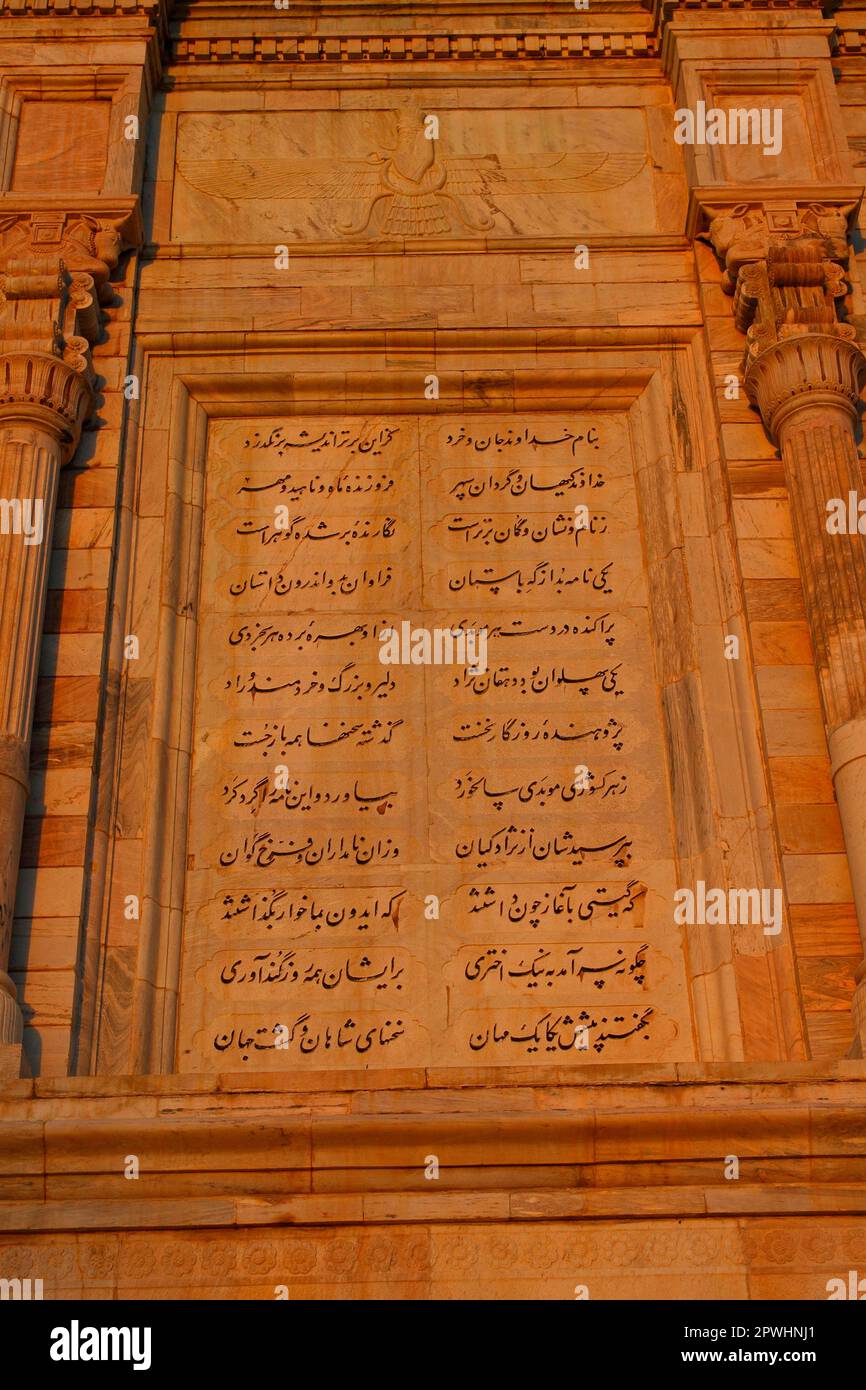 بنام خداوند جان و خرد کزین برتر اندیشه برنگذرد
خداوند کیهان و گردان سپهر فروزنده ماه و ناهید و مهر
ز نام و نشان و گمان برتر است نگارندهٔ برشده گوهر است
یکی نامه بد از گه باستان فراوان بدو اندرون داستان
پراکنده در دست هر موبدی ازو بهرهٔ برده هر بخردی
یکی پهلوان بود دهقان نژاد دلیر و بزرگ و خردمند و راد
پژوهندهٔ روزگار نخست گذشته سخنها همه باز جست
ز هر کشوری موبدی سالخورد بیاورد و این نامه را گرد کرد
بپرسیدشان از نژاد کیان وزان نامداران و فرخ گوان
که گیتی بآغاز چون داشتند که ایدون بما خوار بگذاشتند
چگونه سر آمد به نیک اختری برایشان همه روز گند آوری
بگفتند پیشش یکایک مهان سخنهای شاهان و گشت جهان
alamy
alamy
Image ID: 2PWHNJ1
www.alamy.com